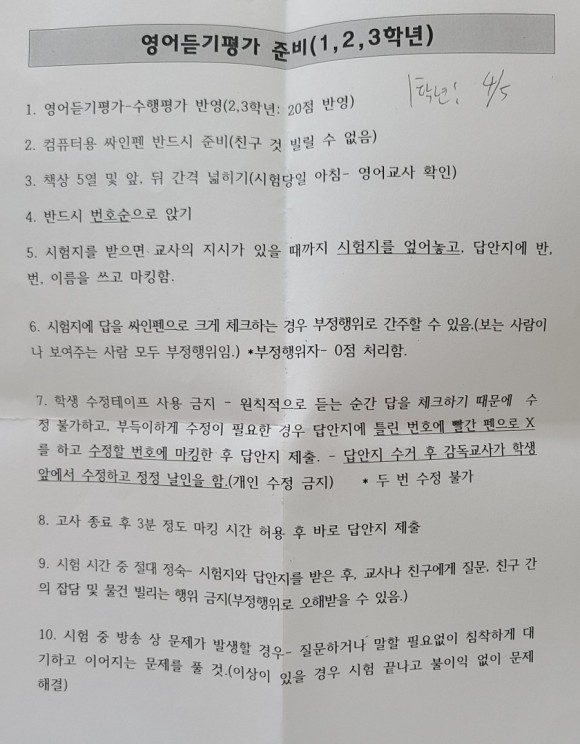 영어듣기평가 준비(1,2,3학년)
1학년: 4/5
1. 영어듣기평가-수행평가 반영(2,3학년: 20점 반영)
2. 컴퓨터용 싸인펜 반드시 준비(친구 것 빌릴 수 없음)
3. 책상 5열 및 앞, 뒤 간격 넓히기(시험당일 아침- 영어교사 확인)
4. 반드시 번호순으로 앉기
5. 시험지를 받으면 교사의 지시가 있을 때까지 시험지를 엎어놓고, 답안지에 반,
번, 이름을 쓰고 마킹함.
6. 시험지에 답을 싸인펜으로 크게 체크하는 경우 부정행위로 간주할 수 있음.(보는 사람이
나 보여주는 사람 모두 부정행위임.) *부정행위자- 0점 처리함.
7. 학생 수정테이프 사용 금지 - 원칙적으로 듣는 순간 답을 체크하기 때문에 수
정 불가하고, 부득이하게 수정이 필요한 경우 답안지에 틀린 번호에 빨간 펜으로 X
를 하고 수정할 번호에 마킹한 후 답안지 제출. - 답안지 수거 후 감독교사가 학생
앞에서 수정하고 정정 날인을 함.(개인 수정 금지) * 두 번 수정 불가
8. 고사 종료 후 3분 정도 마킹 시간 허용 후 바로 답안지 제출
9. 시험 시간 중 절대 정숙- 시험지와 답안지를 받은 후, 교사나 친구에게 질문, 친구 간
의 잡담 및 물건 빌리는 행위 금지(부정행위로 오해받을 수 있음.)
10. 시험 중 방송 상 문제가 발생할 경우- 질문하거나 말할 필요없이 침착하게 대
기하고 이어지는 문제를 풀 것.(이상이 있을 경우 시험 끝나고 불이익 없이 문제
해결)